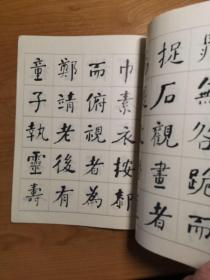 無咎跪而
捉石觀畫者
巾素衣按膝
而俯視者為
鄭靖老後有
童子執靈壽